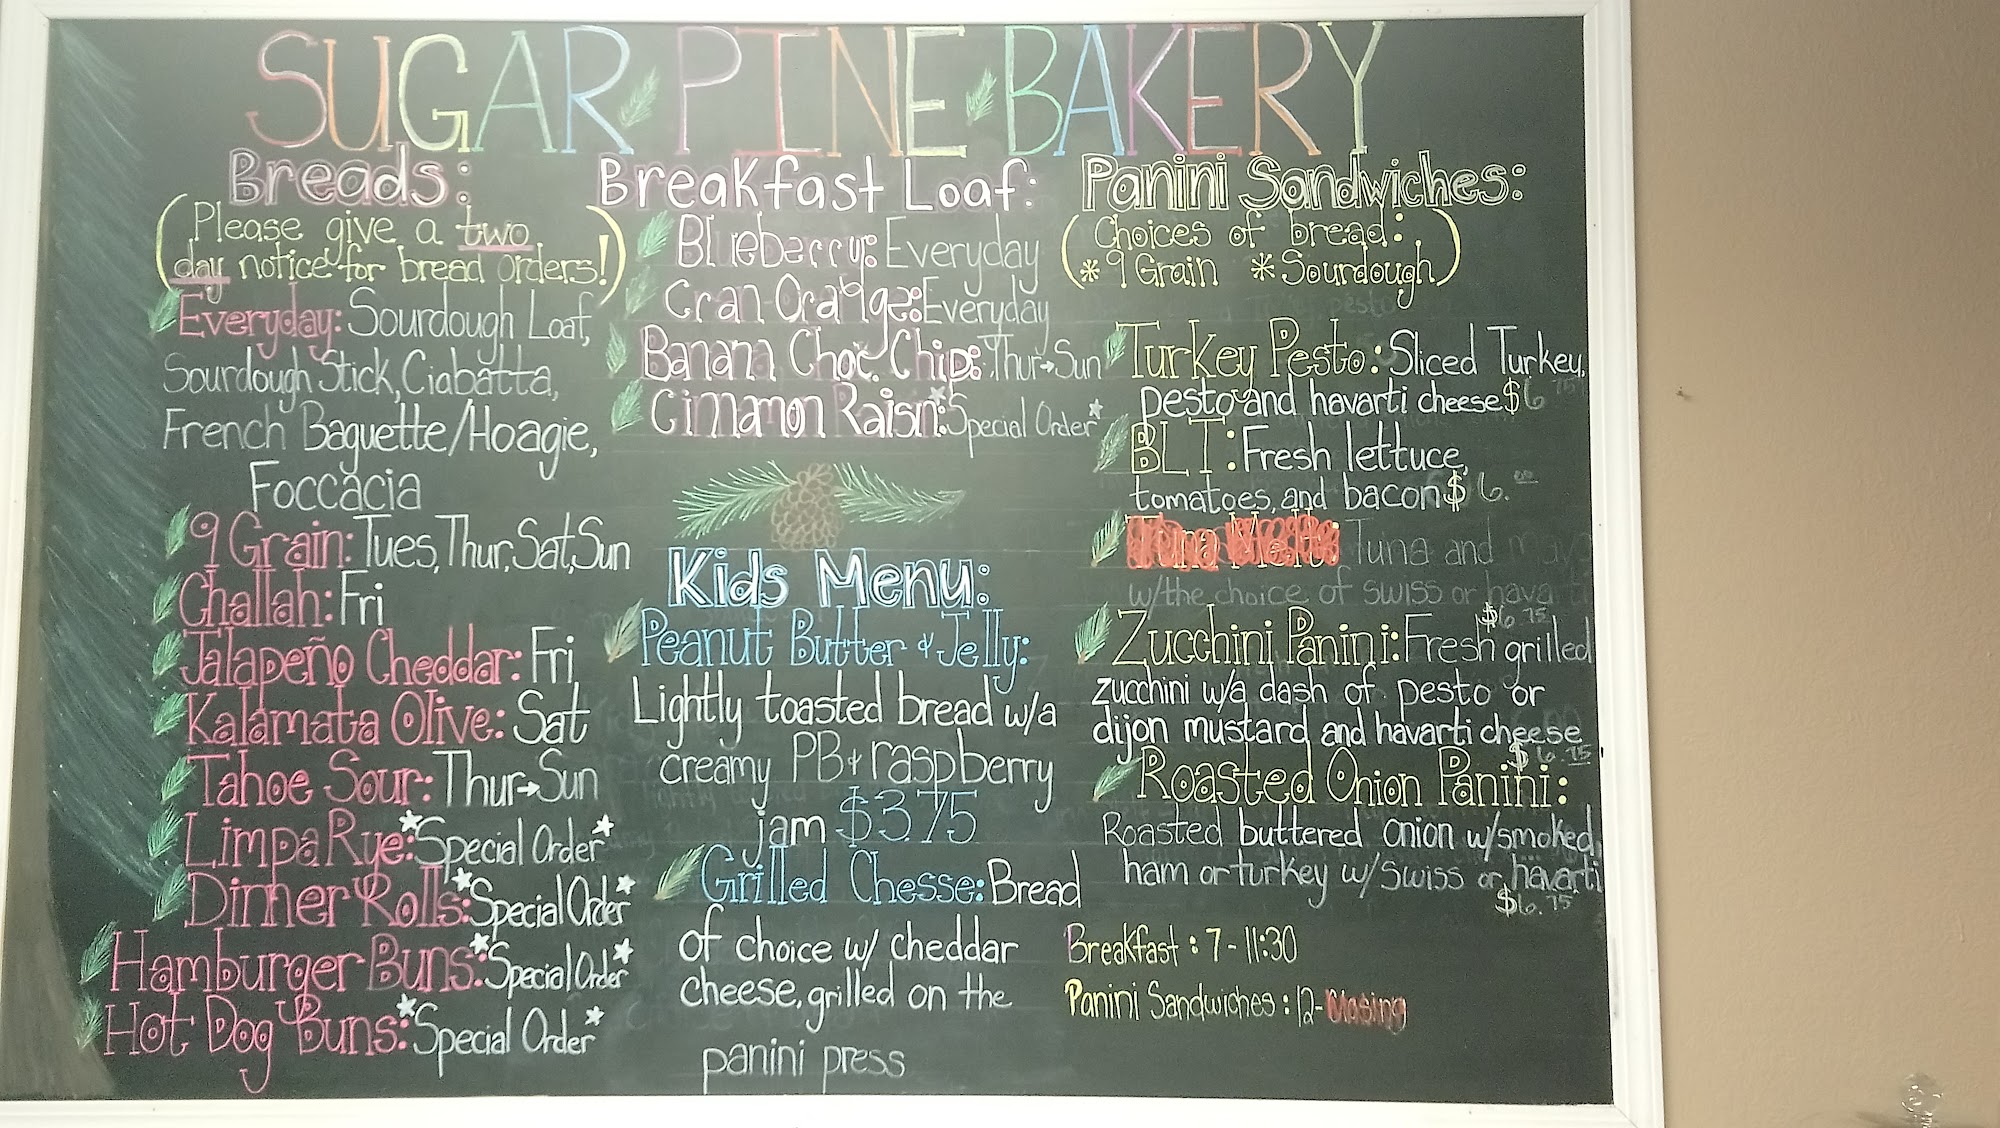 SUGAR PINE BAKERY
Breads:
(Please give a two
day notice for bread orders!)
Everyday: Sourdough Loaf,
Sourdough Stick, Ciabatta,
French Baguette/Hoagie,
Foccacia
9 Grain: Tues, Thur, Sat, Sun
Challah: Fri
Jalapeño Cheddar: Fri
Kalamata Olive: Sat
Tahoe Sour: Thur→Sun
Limpa Rye: *Special Order*
Dinner Rolls: *Special Order*
Hamburger Buns: *Special Order*
Hot Dog Buns: *Special Order*
Breakfast Loaf:
Blueberry: Everyday
Cran Orange: Everyday
Banana Choc. Chip: Thur→Sun
Cinnamon Raisin: *Special Order*
Kids Menu:
Peanut Butter & Jelly:
Lightly toasted bread w/a
creamy PB & raspberry
jam $3.75
Grilled Chesse: Bread
of choice w/ cheddar
cheese, grilled on the
panini press
Panini Sandwiches:
(Choices of bread:
* 9 Grain * Sourdough)
Turkey Pesto: Sliced Turkey,
pesto and havarti cheese $6.75
BLT: Fresh lettuce,
tomatoes, and bacon $6.00
Tuna Melt: Tuna and mayo
w/the choice of swiss or havarti
$6.75
Zucchini Panini: Fresh grilled
zucchini w/a dash of pesto or
dijon mustard and havarti cheese
$6.75
Roasted Onion Panini:
Roasted buttered onion w/smoked
ham or turkey w/ swiss or havarti
$6.75
Breakfast: 7-11:30
Panini Sandwiches: 12-